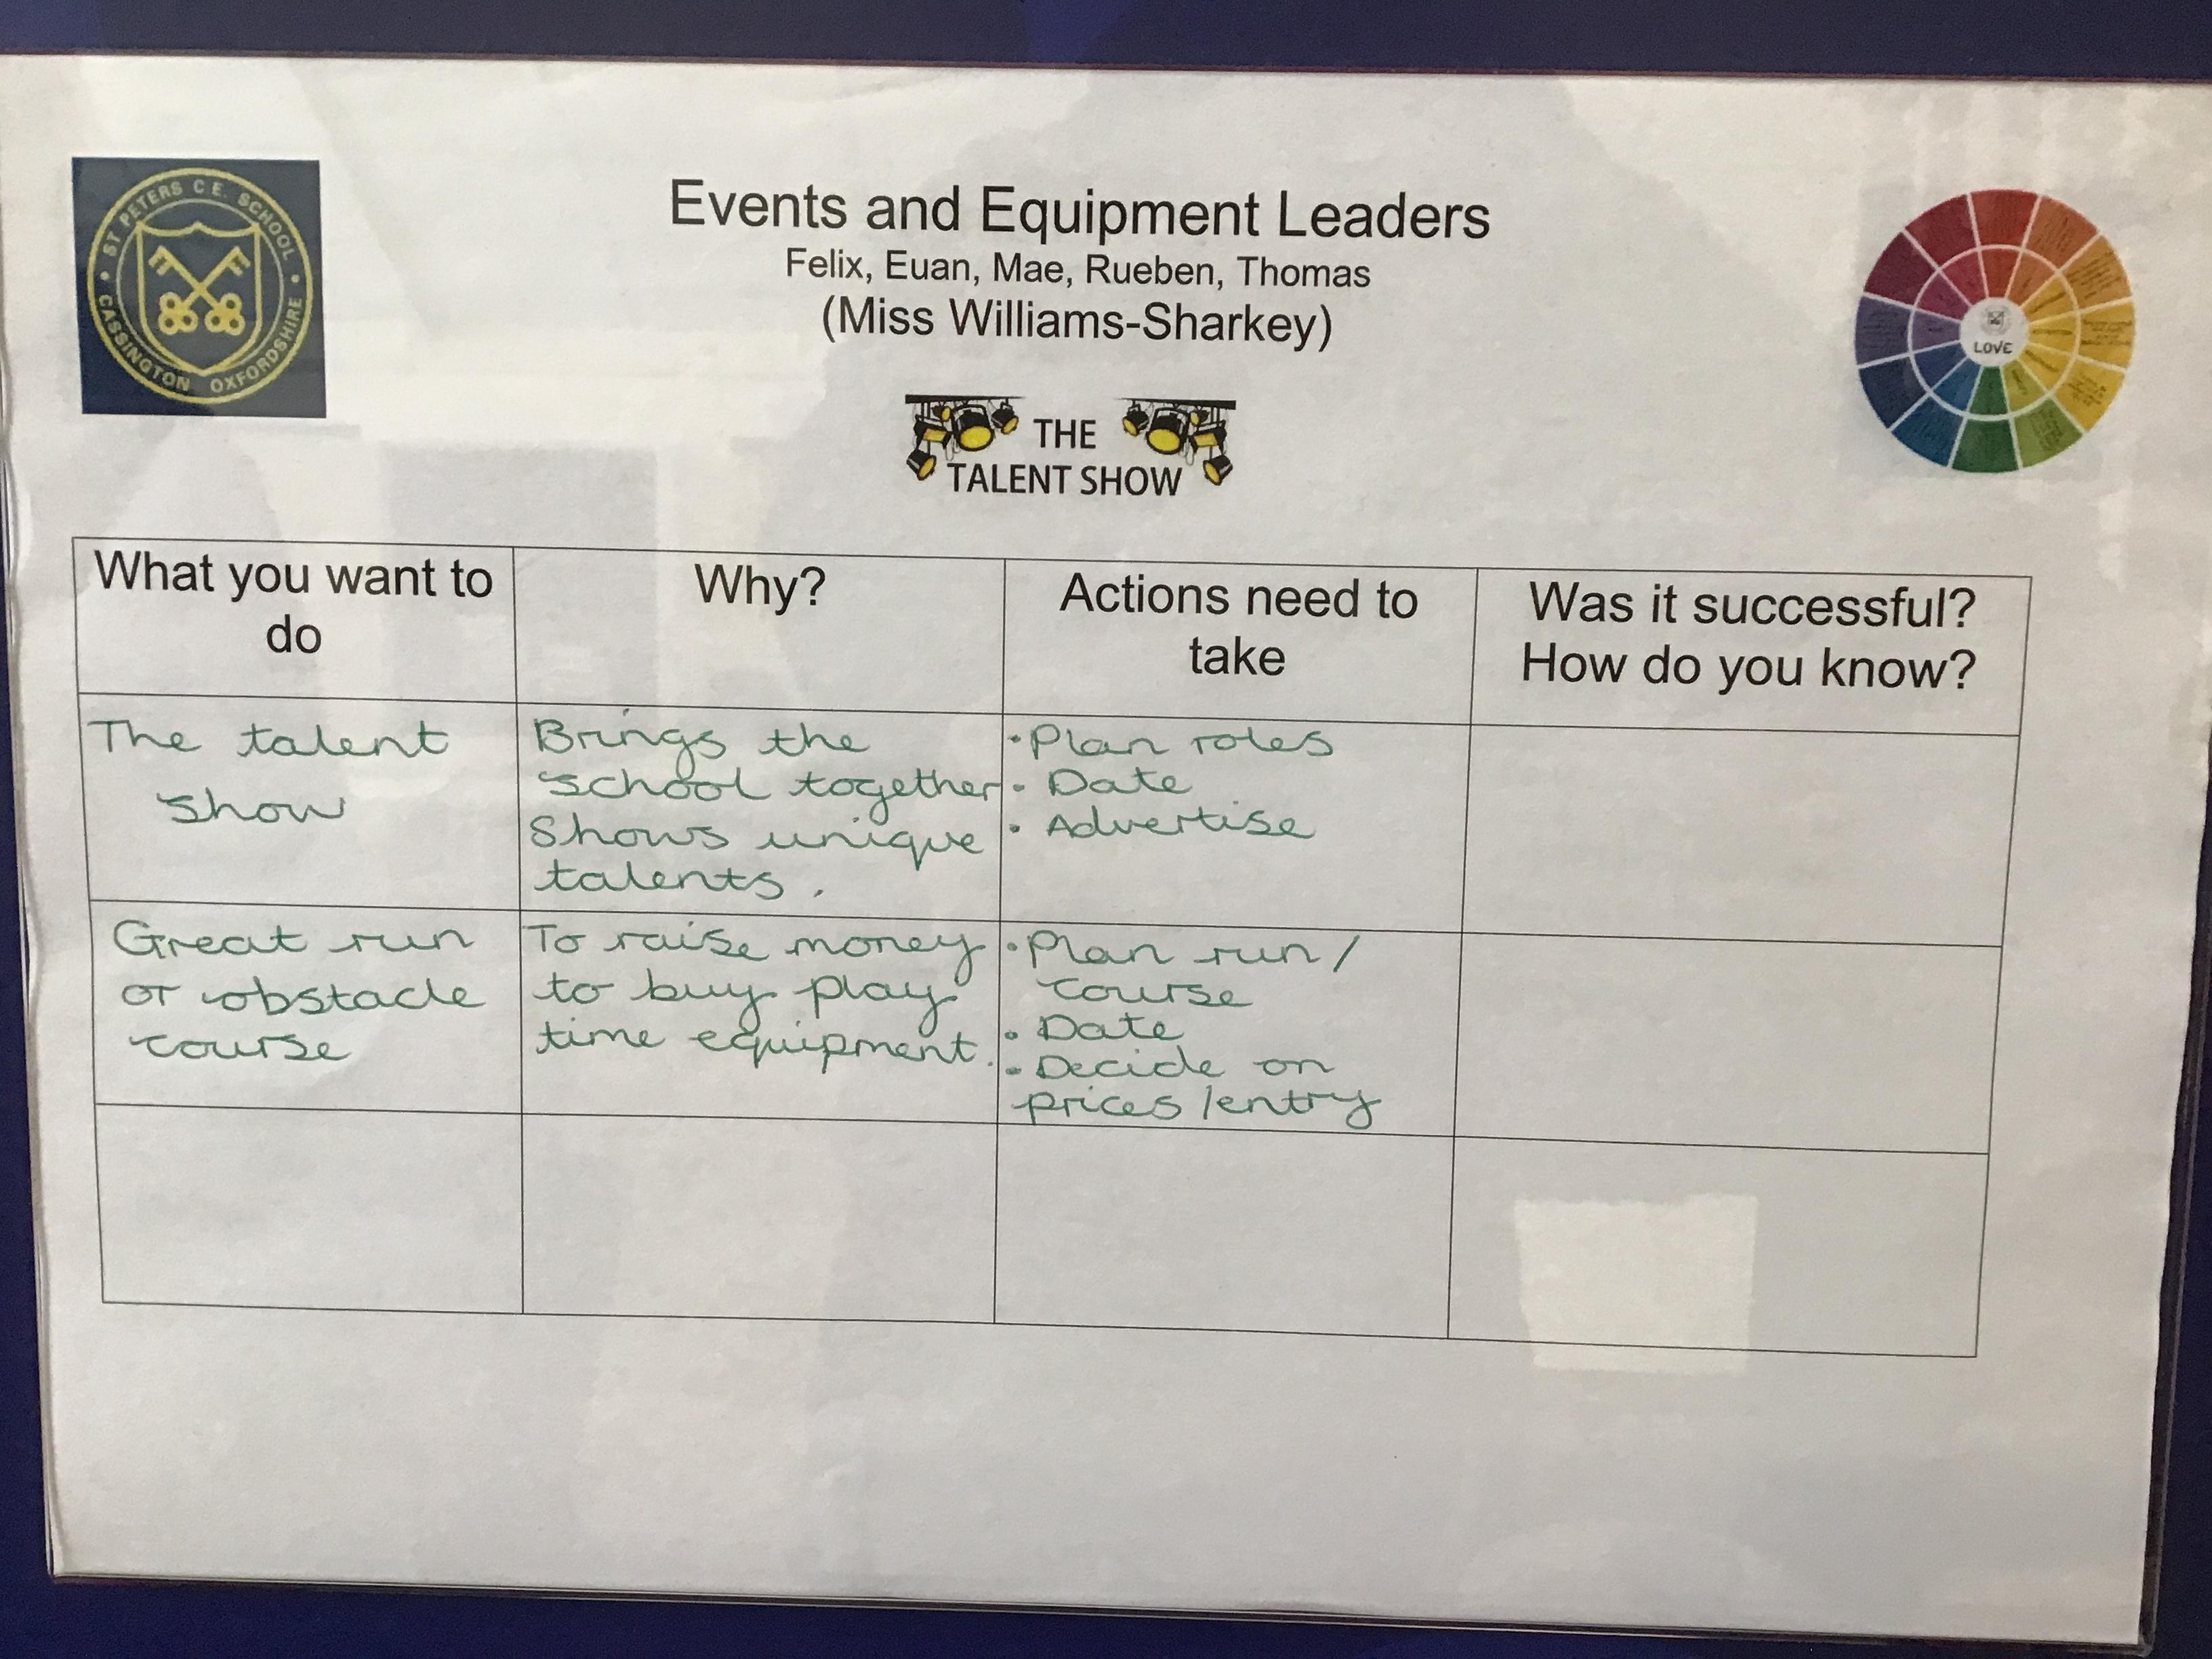 ST PETERS C.E. SCHOOL
CASSINGTON OXFORDSHIRE
Events and Equipment Leaders
Felix, Euan, Mae, Rueben, Thomas
(Miss Williams-Sharkey)
LOVE
THE
TALENT SHOW
What you want to
do
Why?
Actions need to
take
Was it successful?
How do you know?
The talent
show
Brings the
school together
Shows unique
talents.
• Plan roles
• Date
• Advertise
Great run
or obstacle
course
To raise money
to buy play
time equipment.
• Plan run /
course
• Date
• Decide on
prices /entry